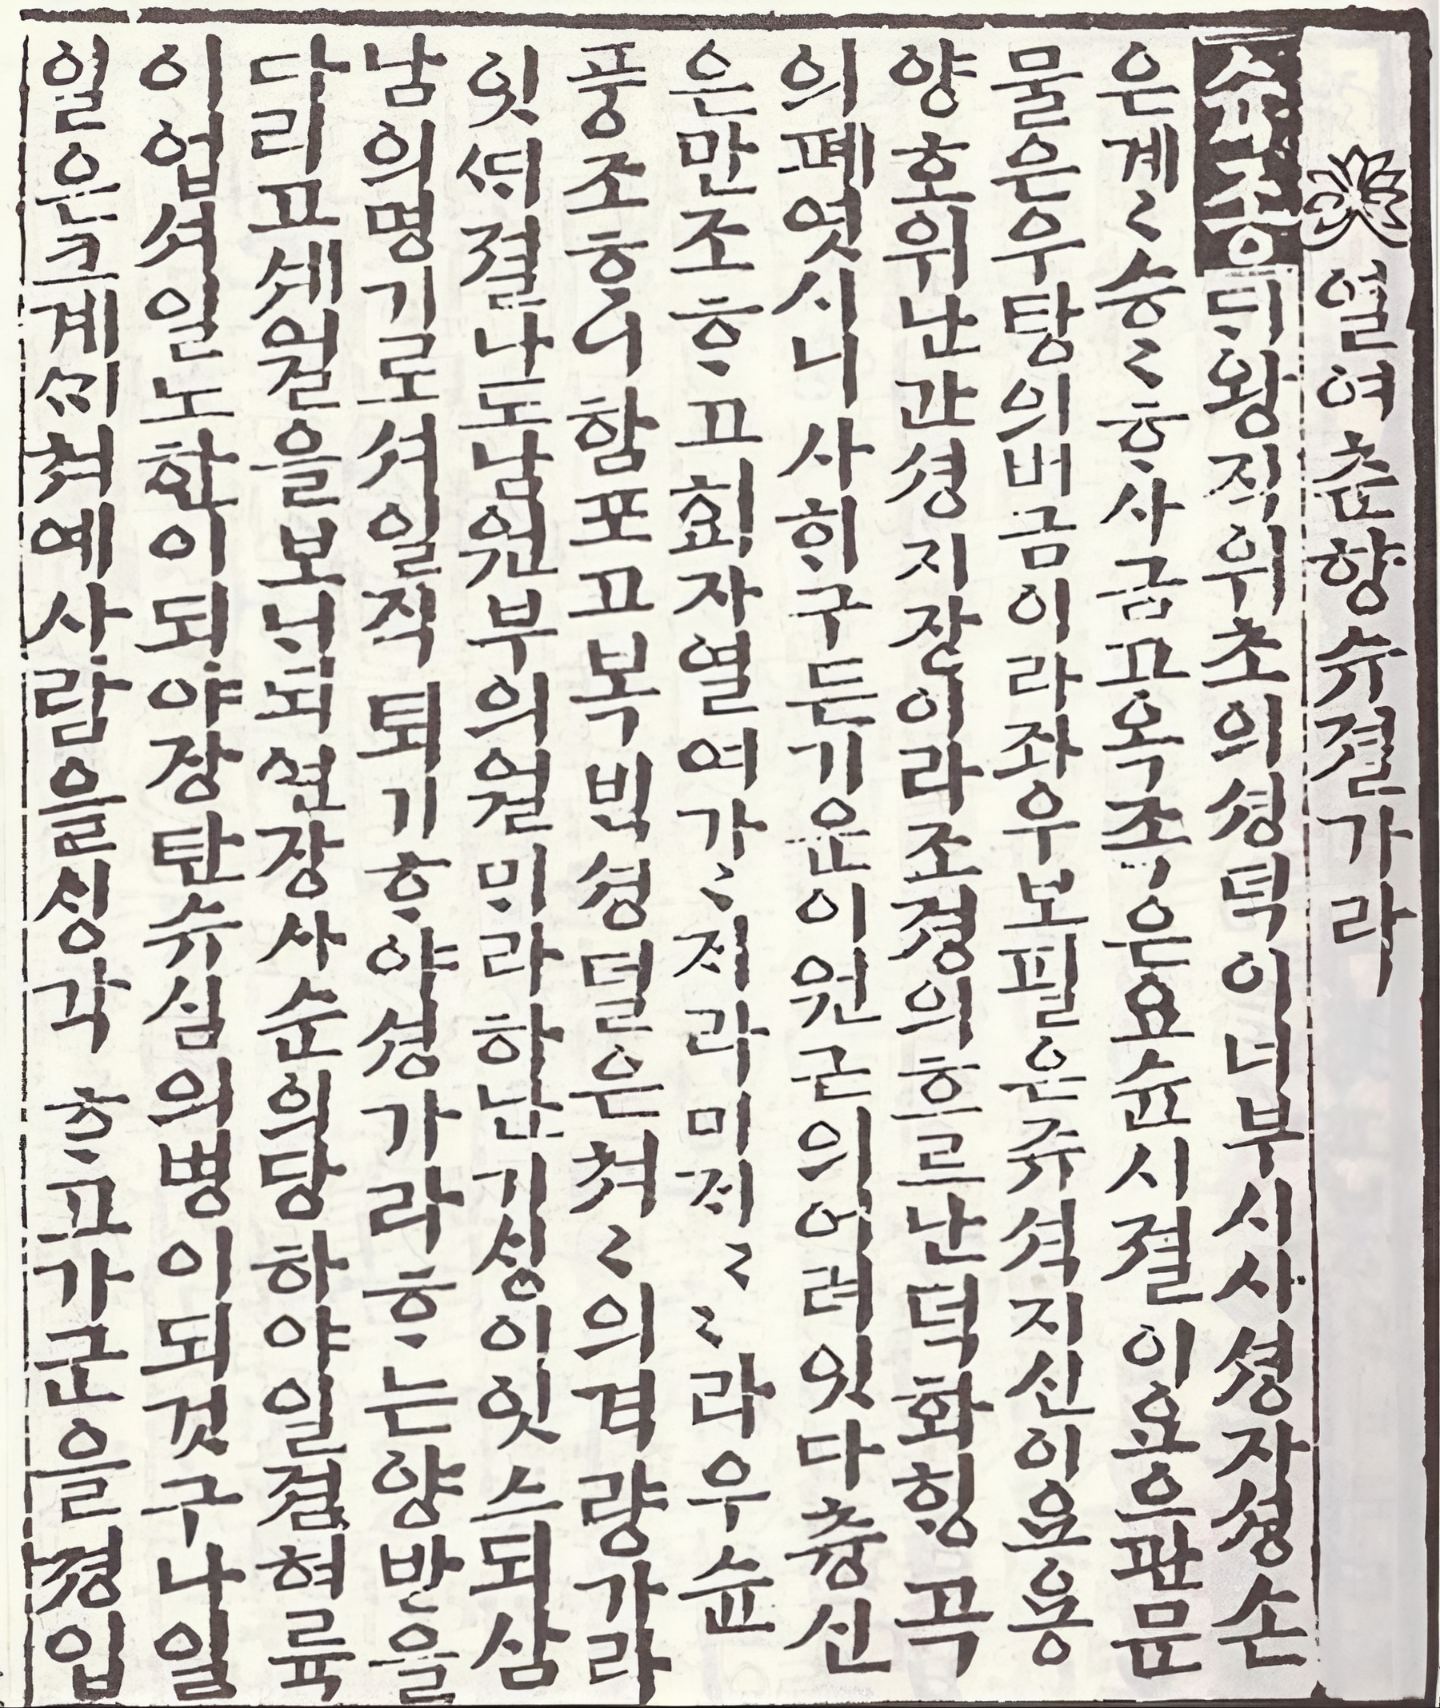 열여춘향슈졀가라
슉종ᄃᆡ왕직위초의셩덕이너부시사셩자셩손
은계〻승〻ᄒᆞ사금고옥조은요슌시졀이요으관문
물은우탕의버금이라좌우보필은쥬셕지신이요용
양호위난간셩지장이라조졍의흐르난덕화ᄒᆡᆼ곡
의폐엿시니사ᄒᆡ구든기운이원근의어려잇다츙신
은만조ᄒᆞ고회자열여가〻ᄌᆡ라미ᄌᆡ〻〻라우슌
풍조ᄒᆞ니함포고복ᄇᆡᆨ셩덜은쳐〻의격량가라
잇ᄯᆡ졀나도남원부의월ᄆᆡ라하난기ᄉᆡᆼ이잇스되삼
남의명기로셔일직퇴기ᄒᆞ야셩가라ᄒᆞ는양반을
다리고세월을보ᄂᆡ되연장사순의당하야일졈혁륙
이업셔일노한이되야장탄슈심의병이되것구나일
일은크계ᄭᆡ쳐예사람을ᄉᆡᆼ각ᄒᆞ고가군을쳥입